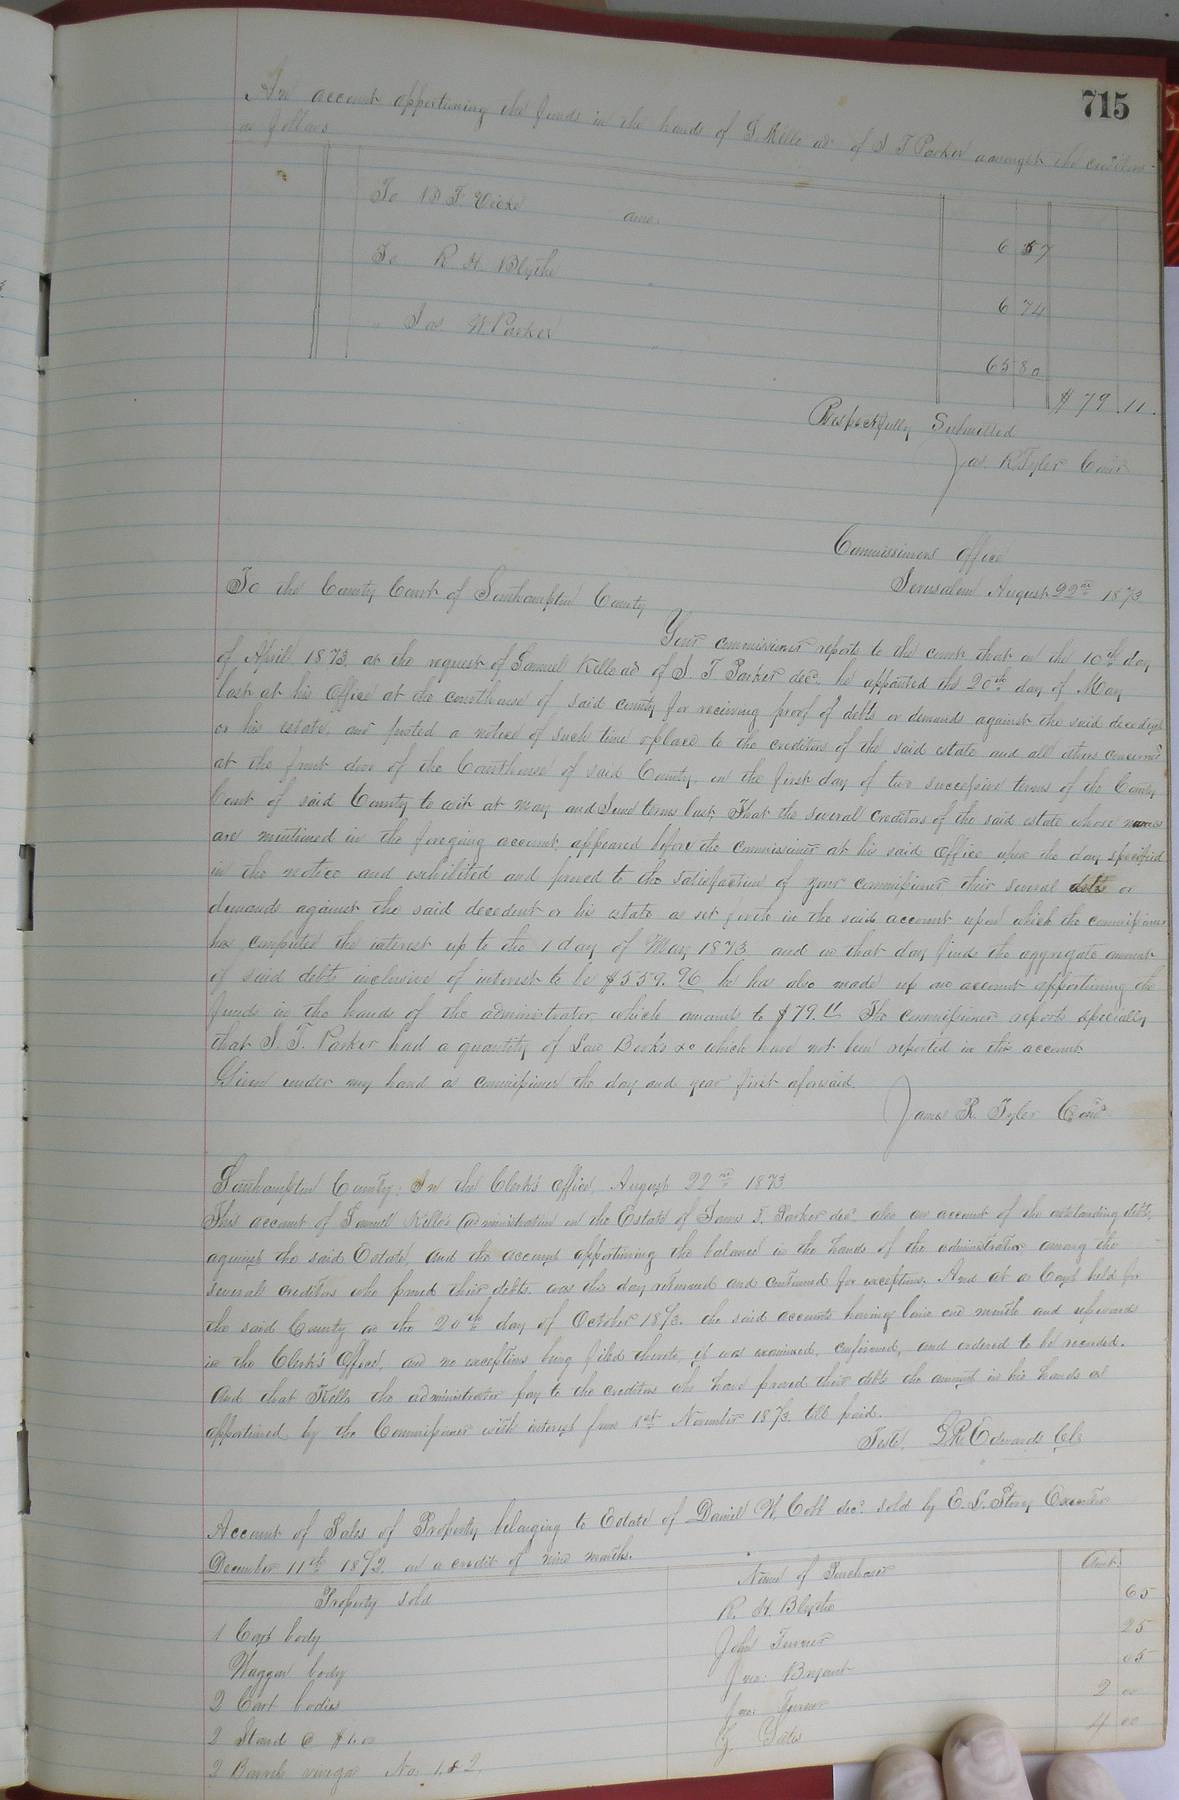 715
An account apportioning the funds in the hands of S Kello ad of J T Parker amongst the creditors
as follows
To amo. 6 57
To R H. Blythe 6 74
" Jas W. Parker 65 80
$79 11.
Respectfully Submitted
Jas R Tyler Comr
Commissioners Office
Jerusalem August 22nd 1873
To the County Court of Southampton County
Your commissioner reports to the court that on the 10th day
of April 1873, at the request of Samuel Kello ad of J. T Parker decd. he appointed the 20th day of May
last at his Office at the courthouse of said county for receiving proof of debts or demands against the said decedent
or his estate, and posted a notice of such time & place to the creditors of the said estate and all others concerned
at the front door of the Courthouse of said County, on the first day of two successive terms of the County
Court of said County to wit at May and June terms last, That the several creditors of the said estate whose names
are mentioned in the foregoing account, appeared before the commissioner at his said Office upon the day specified
in the notice and exhibited and proved to the satisfaction of your commissioner their several debts or
demands against the said decedent or his estate as set forth in the said account upon which the commissioner
has computed the interest up to the 1 day of May 1873 and on that day finds the aggregate amount
of said debts inclusive of interest to be $559.96 he has also made up an account apportioning the
funds in the hands of the administrator which amounts to $79.11 The commissioner reports specially
that J. T. Parker had a quantity of Law Books &c which have not been reported in this account
Given under my hand as commissioner the day and year first aforesaid.
James R. Tyler Comr
Southampton County: In the Clerk's Office, August 22nd 1873
This account of Samuel Kello's administration on the Estate of James T. Parker decd. also an account of the outstanding debts
against the said Estate, and the account apportioning the balance in the hands of the administrator among the
several creditors who proved their debts was this day returned and continued for exceptions. And at a Court held for
the said County on the 20th day of October 1873. the said accounts having lain one month and upwards
in the Clerk's Office, and no exceptions being filed thereto, it was examined, confirmed, and ordered to be recorded.
And that Kello the administrator pay to the creditors who have proved their debts the amount in his hands as
apportioned by the Commissioner with interest from 1st November 1873 till paid.
Teste, L R Edwards Clk
Account of Sales of Property belonging to Estate of Daniel W. Cobb decd. sold by E. S. Story Executor
December 11th 1872, on a credit of nine months.
Property sold Name of Purchaser Amt.
1 Cart body R. H. Blythe 65
Waggon body John Turner 25
2 Cart bodies Jno: Bryant 05
2 Stand @ $1.00 Jno: Turner 2 00
2 Barrels vinegar No. 1. & 2. 4 00